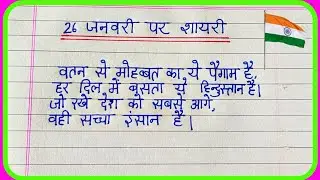 26 जनवरी पर शायरी
वतन से मोहब्बत का ये पैगाम है,
हर दिल में बसता ये हिन्दुस्तान है।
जो रखे देश को सबसे आगे,
वही सच्चा इंसान है।